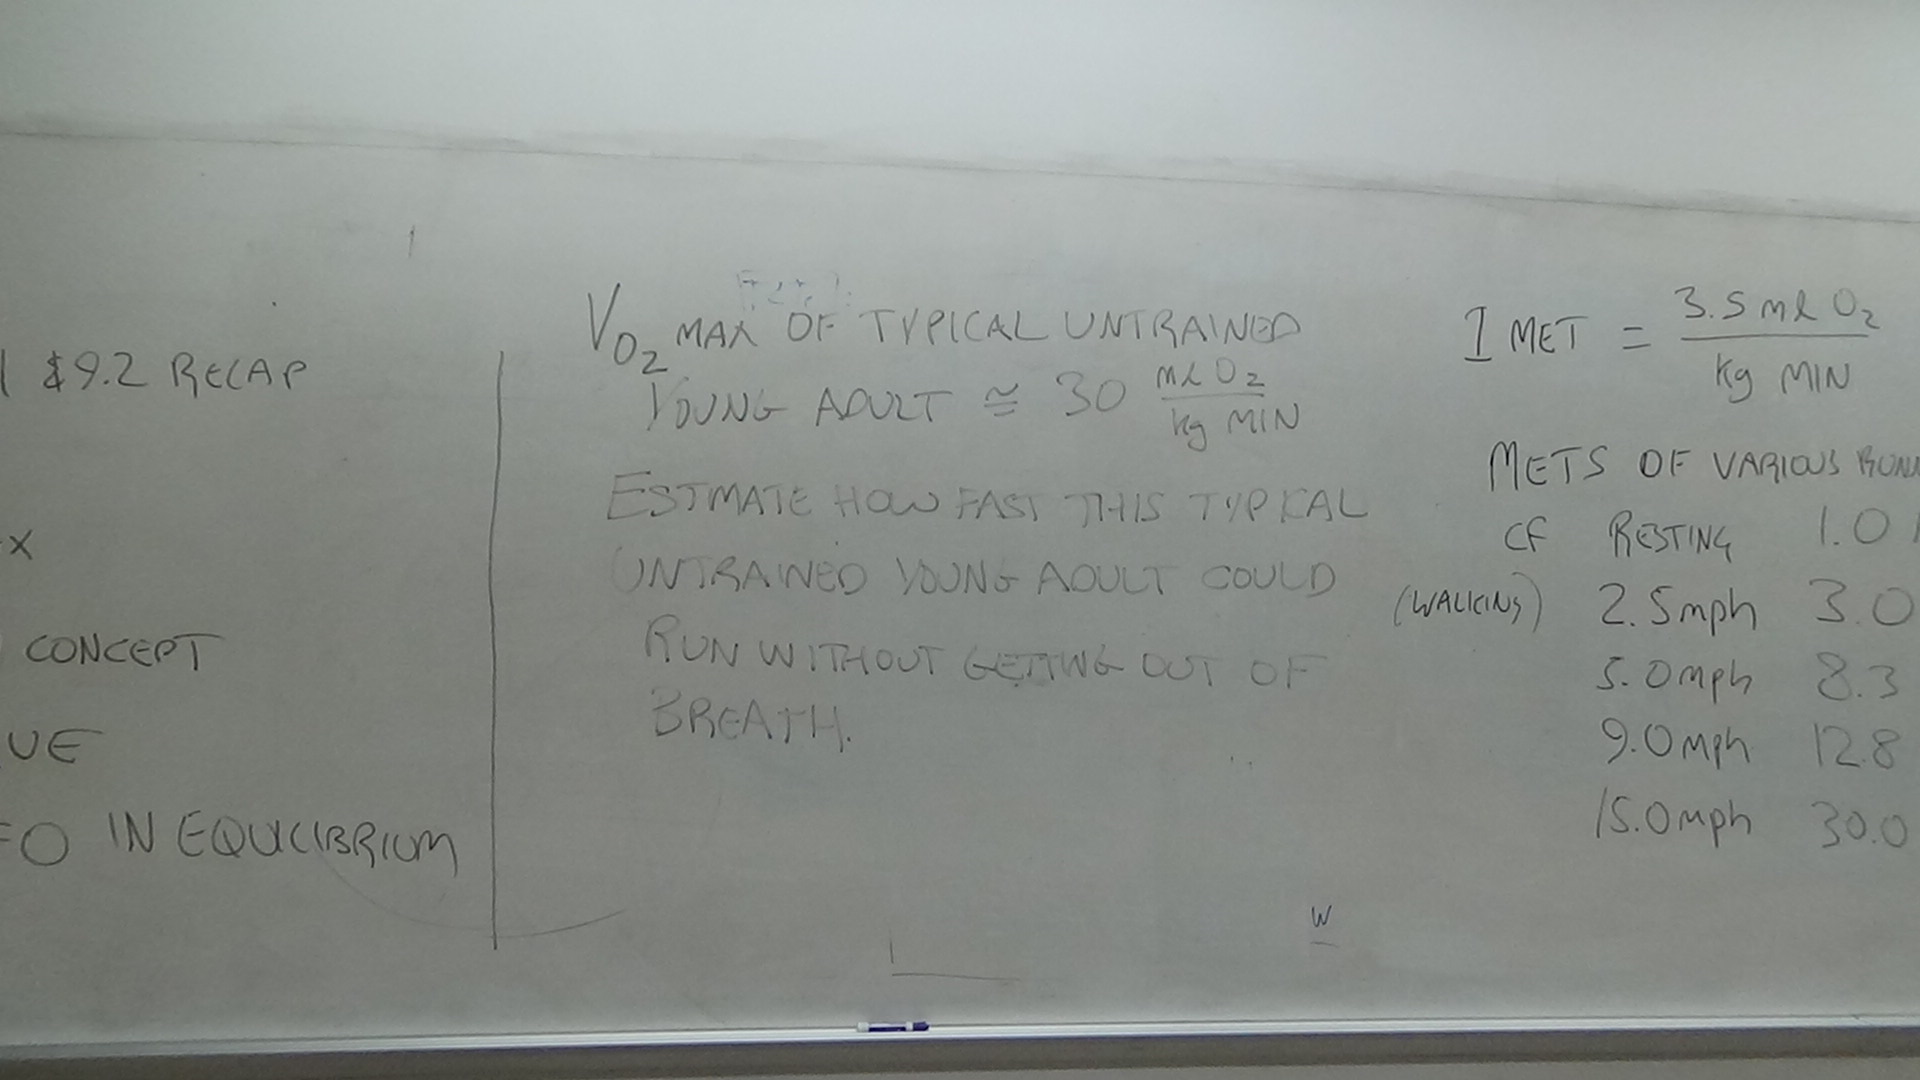 $9.2 RECAP
X
CONCEPT
UE
=0 IN EQUILIBRIUM
VO2 MAX OF TYPICAL UNTRAINED
YOUNG ADULT ≅ 30 ml O2 / kg MIN
ESTMATE HOW FAST THIS TYPICAL
UNTRAINED YOUNG ADULT COULD
RUN WITHOUT GETTING OUT OF
BREATH.
W
1 MET = 3.5 ml O2 / kg MIN
METS OF VARIOUS RUNN
CF RESTING 1.0
(WALKING) 2.5mph 3.0
5.0mph 8.3
9.0mph 12.8
15.0mph 30.0